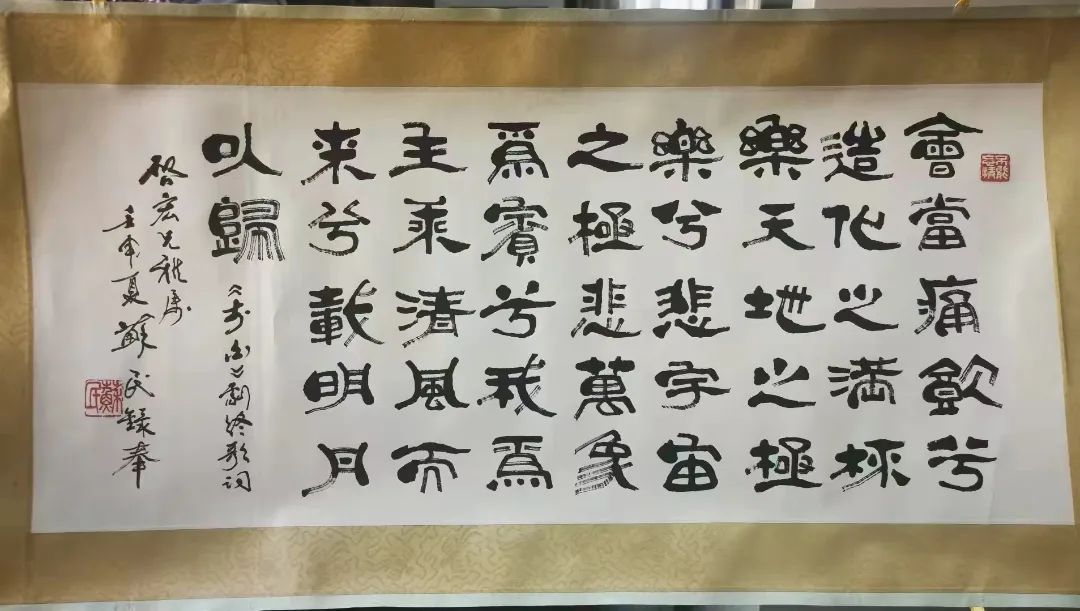 會當痛飲兮
造化之満杯
樂天地之極
樂兮悲宇宙
之極悲萬象
爲賓兮我爲
主乘清風而
来兮載明月
以歸
《李白》劇终歌词
啓宏兄雅属
壬申夏蘇民録奉
蘇民